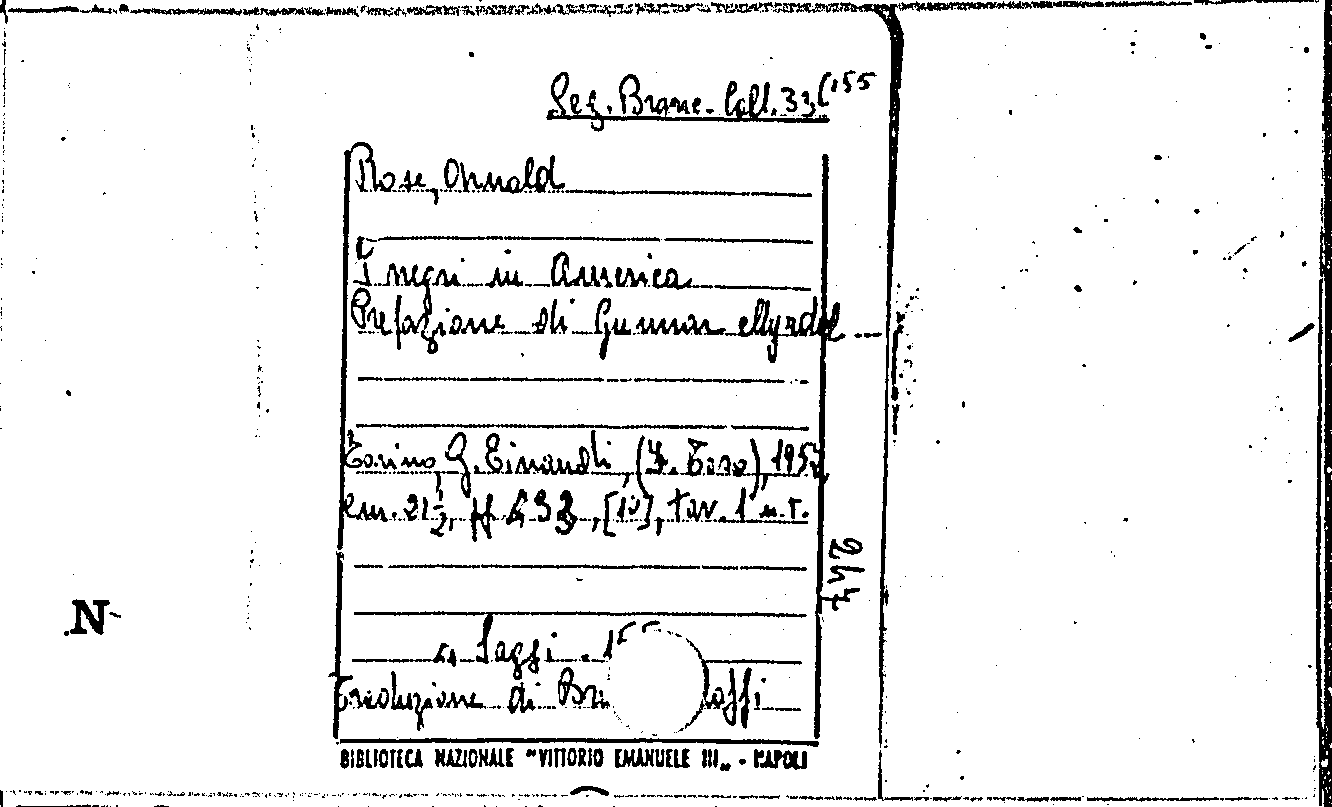 Sez. Branc. Coll. 33 (155
Rose, Arnold
I negri in America
Prefazione di Gunnar Myrdal
Torino, G. Einaudi, (F. Toso), 195
cm. 21 1/2, pp 432, [10], tav. 1 n.t.
Saggi. 155
Traduzione di Br offi
247
N
BIBLIOTECA NAZIONALE "VITTORIO EMANUELE III„ - NAPOLI